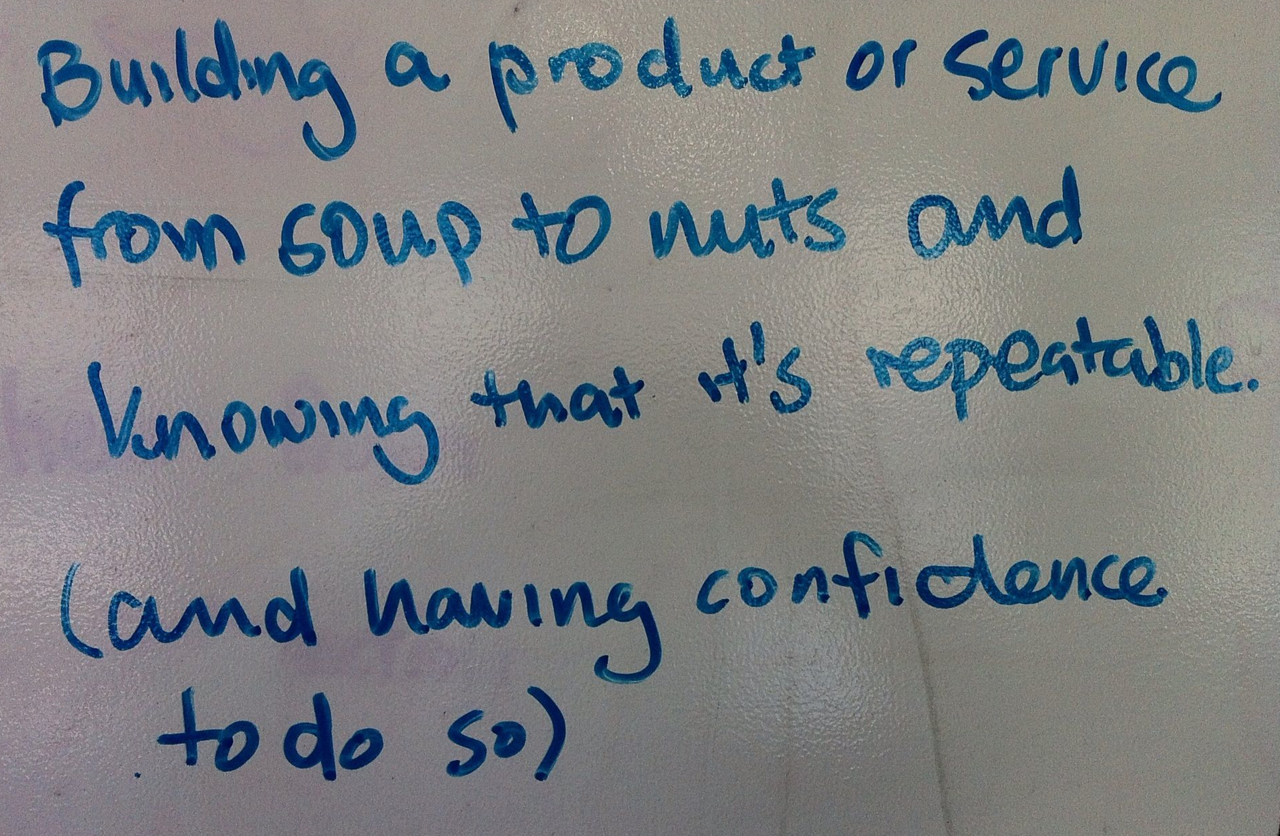 Building a product or service
from soup to nuts and
knowing that it's repeatable.
(and having confidence
to do so)